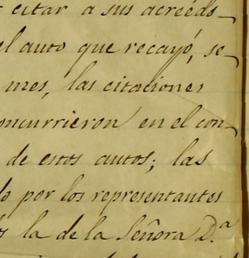 citar a sus acreedo_
el auto que recayó, se_
mes, las citaciones
oncurrieron en el con_
de estos autos; las
do por los representantes
la de la Señora D.ª